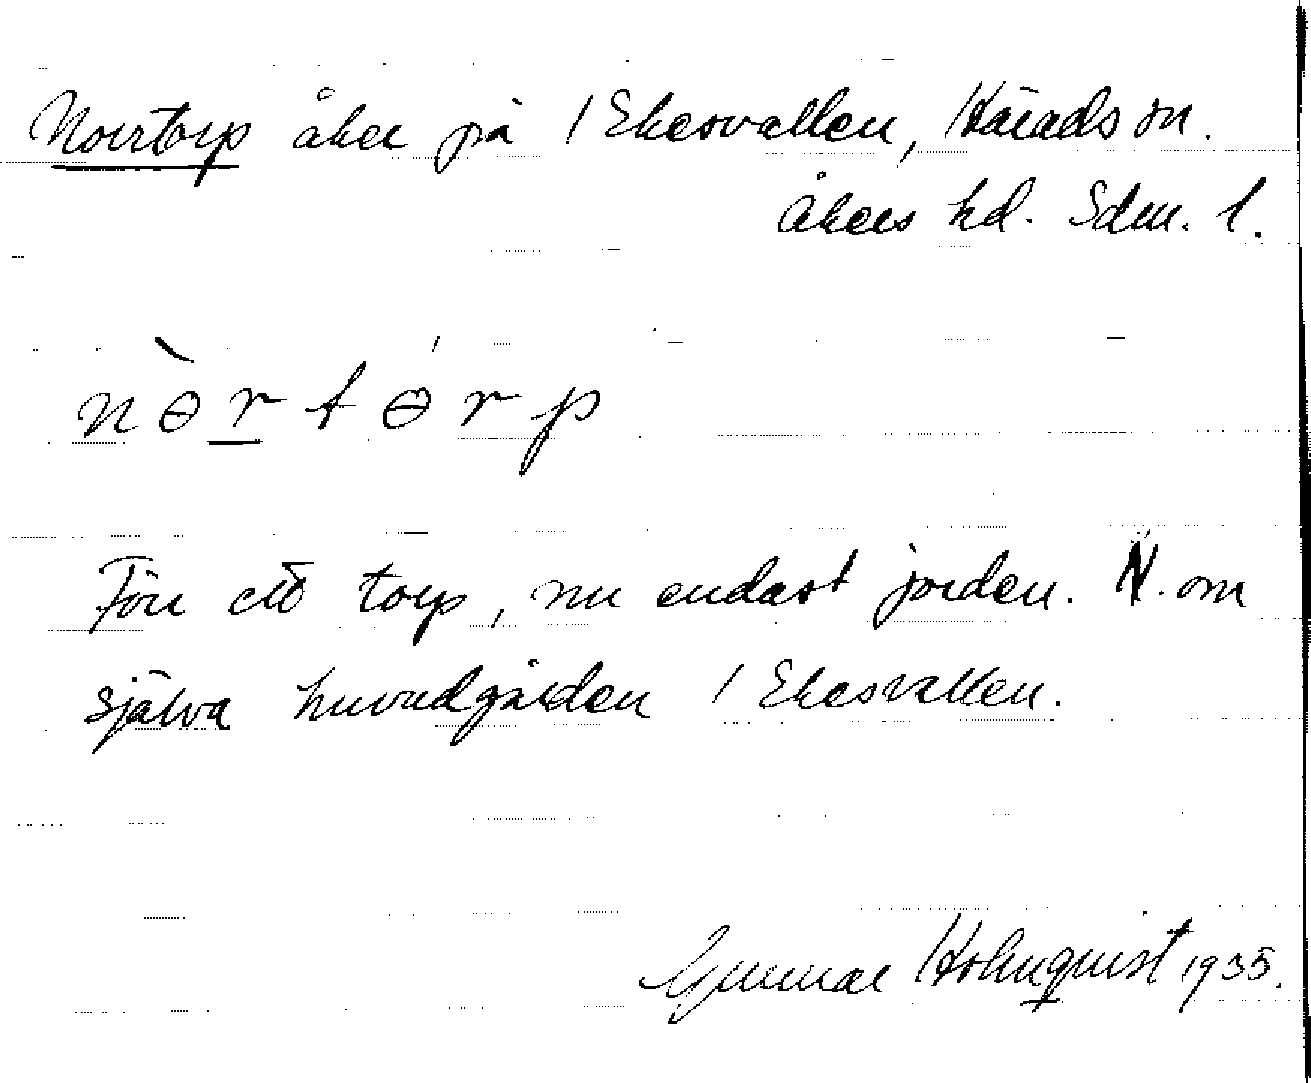 Norrtorp åker på 1 Ekesvallen, Härads sn.
Åkers hd. Sdm. l.
nɵ̀rtɵ́rp
Förr ett torp, nu endast jorden. N. om
själva huvudgården 1 Ekesvallen.
Gunnar Holmquist 1935.